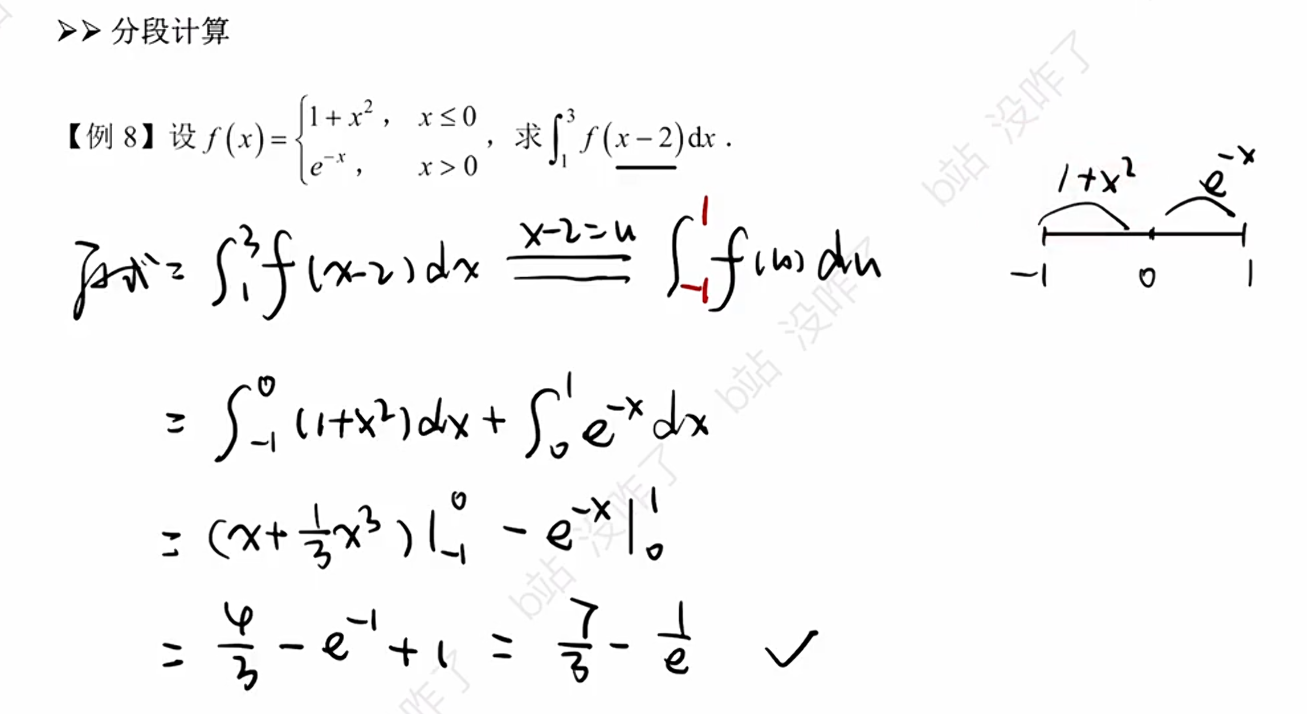 ➢➢ 分段计算
【例 8】设 f(x)={1+x², x≤0; e⁻ˣ, x>0, 求∫₁³ f(x−2)dx.
1+x² e⁻ˣ
-1 0 1
原式= ∫₁³ f(x-2)dx \overset{x-2=u}{=} ∫₋₁¹ f(u)du
= ∫₋₁⁰ (1+x²)dx + ∫₀¹ e⁻ˣ dx
= (x+1/3 x³)|₋₁⁰ - e⁻ˣ|₀¹
= 4/3 - e⁻¹ + 1 = 7/3 - 1/e ✓
b站 没咋了
b站 没咋了
b站 没咋了
b站 没咋了